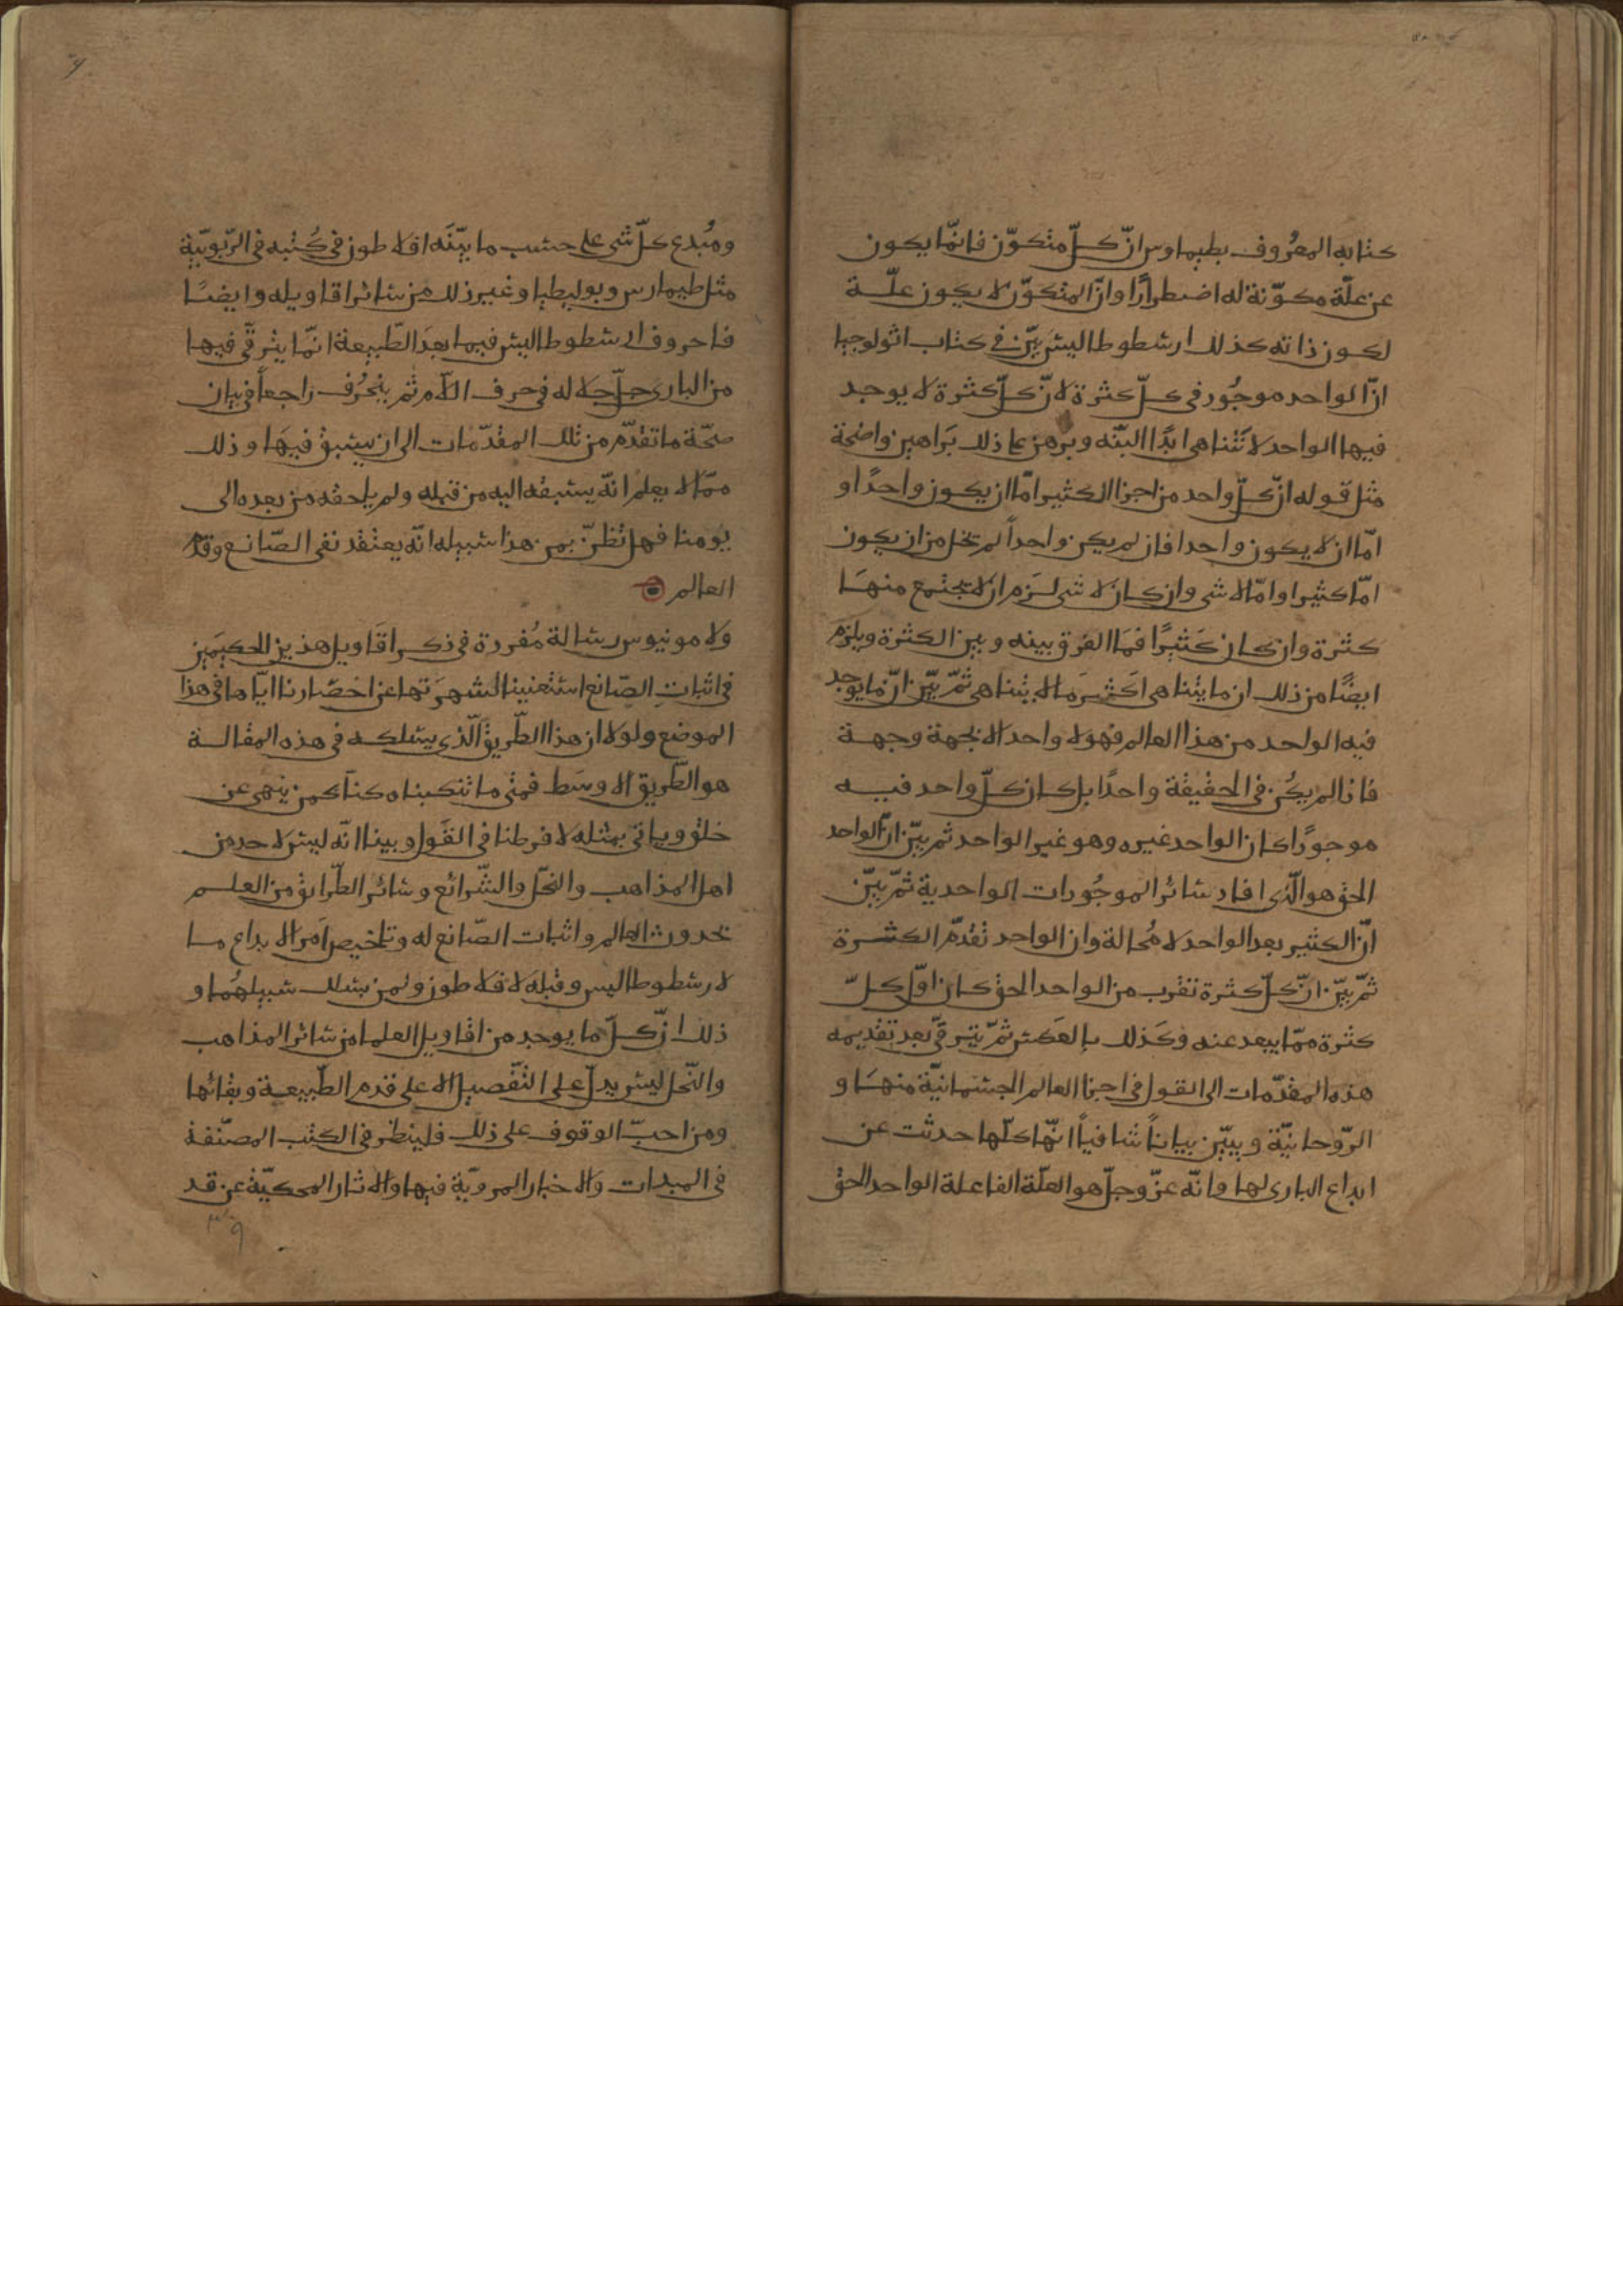 كتابه المعرُوف بطيماوس انّ كلّ متكوّن فانمّا يكون
عن علّة مكوّنة له اضطرارًا وانّ المتكوّن لا يكون علّة
لكون ذاته كذلك ارسطوطاليس بيّن في كتاب اثولوجيا
انّ الواحد موجُود في كلّ كثرة لانّ كلّ كثرة لا يوجد
فيها الواحد لا تَتناهى ابدًا البتّه وبرهن على ذلك بَراهين واضحة
مثل قوله انّ كلّ واحد من اجزا الكثير امّا ان يكون واحدًا و
امّا ان لا يكون واحدا فان لم يكن واحداً لم تخل من ان يكون
امّا كثيرا وامّا لا شى وان كان لا شى لزم ان لا تجتمع منهَا
كثرة وان كان كَثيرًا فمَا الفرق بينه وبين الكثرة ويلزم
ايضًا من ذلك ان ما يتناهى اكَثر مَما لا يتناهى ثمّ بيّن انّ ما يوجد
فيه الواحد من هذا العالم فهو لا واحد الا بجهة وجهة
فاذا لم يكُن في الحقيقة واحدًا بل كان كلّ واحد فيه
موجودًا كان الواحد غيره وهو غير الواحد ثم بيّن انّ الواحد
الحق هو الّذى افاد سائر الموجُودات الواحدية ثمّ بيّن
انّ الكثير بعد الواحد لا مُحالة وان الواحد تقدّم الكثرة
ثمّ بيّن انّ كلّ كثرة تقرب من الواحد الحق كان اوّل كلّ
كثرة ممّا يبعد عنه وكَذلك بالعَكس ثمّ يترقّى بَعد تقديمه
هذه المقدّمات الى القول في اجزا العالم الجسمانيّة منهَا و
الرّوحانيّة ويبيّن بياناً شافياً انّها كلّها حدثت عن
ابداع البارى لها وانّه عزّ وجلّ هو العلّة الفاعلة الواحد الحق
ومُبدع كلّ شى على حسب ما بيّنَه افلاطون في كُتبه في الرّبوبيّة
مثل طيماوس وبوليطيا وغير ذلك من سائر اقاويله وايضًا
فاحروف ارسطوطاليس فيما بعدَ الطّبيعة انمّا يترقّى فيها
من البارى جلّ جلاله في حرف اللّام ثم ينحُرف راجعاً في بيان
صحّة ما تقدّم من تلك المقدّمات الى ان يسبق فيهَا وذلك
ممّا لا يعلم انّه يسبقه اليه من قبله ولم يلحقه من بعده الى
يومنا فهل تظنّ بمن هذا سبيله انّه يعتقد نفى الصّانع وقدم
العالم
ولامونيوس رسالة مُفردة في ذكر اقَاويل هذين الحكيمَين
في اثبات الصّانع استغنينا لشهرَتها عن احضارنا ايّاها في هذا
الموضع ولولا ان هذا الطّريق الّذى يسلكه في هذه المقالة
هو الطّريق الاوسَط فمتى ما تنكبناه كنّا كمن ينهى عن
خلق وياتي بمثله لافرطنا في القَول وبينا انّه ليس لاحد من
اهل المذاهب والنحَل والشّرائع وسائر الطّرايق من العلم
بحدوث العالم واثبات الصّانع له وتلخيص اَمر الابداع ما
لارسطوطاليس وقبلَه لافلاطون ولمن يسلك سَبيلهُما و
ذلك انّ كلّ ما يوجد من اقاويل العلما من سائر المذاهب
والنّحل ليس يدلّ على التّفصيل الا على قدم الطّبيعة وبقائها
ومن احبّ الوقوف على ذلك فلينظر في الكتب المصنّفة
في المبدات وَالاخبار المرويّة فيها والاثار المحكيّة عن قد